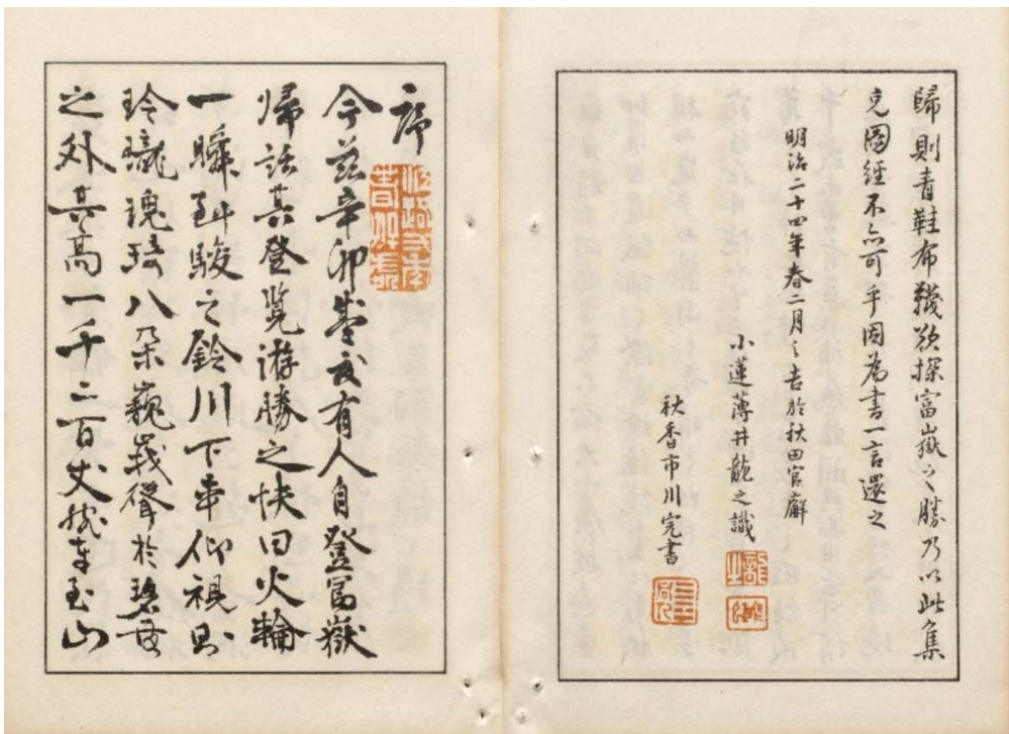 歸則青鞋布韈欲探富嶽之勝乃以此集
充圖經不亦可乎因為書一言還之
明治二十四年春二月之吉於秋田官廨
小蓮薄井龍之識
秋香市川完書
序
今茲辛卯有人自登富嶽
帰話其登覧游勝之快曰火輪
一瞬到駿之鈴川下車仰視則
玲瓏瑰琦八朵巍峩聳於碧
之外其高一千二百丈汽車至山